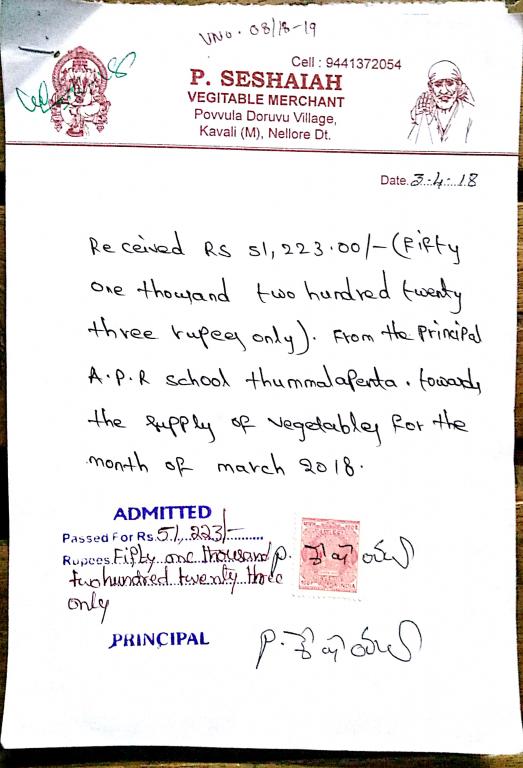 VNO. 08/18-19
Cell : 9441372054
P. SESHAIAH
VEGITABLE MERCHANT
Povvula Doruvu Village,
Kavali (M), Nellore Dt.
Date. 3-4-18
Received RS 51,223.00/- (Fifty
one thousand two hundred twenty
three rupees only). From the principal
A.P.R school thummalapenta. towards
the supply of vegetables for the
month of march 2018.
ADMITTED
Passed For Rs. 51,223/-
Rupees Fifty one thousand
two hundred twenty three
only
P. శేషయ్య
PRINCIPAL
P. శేషయ్య